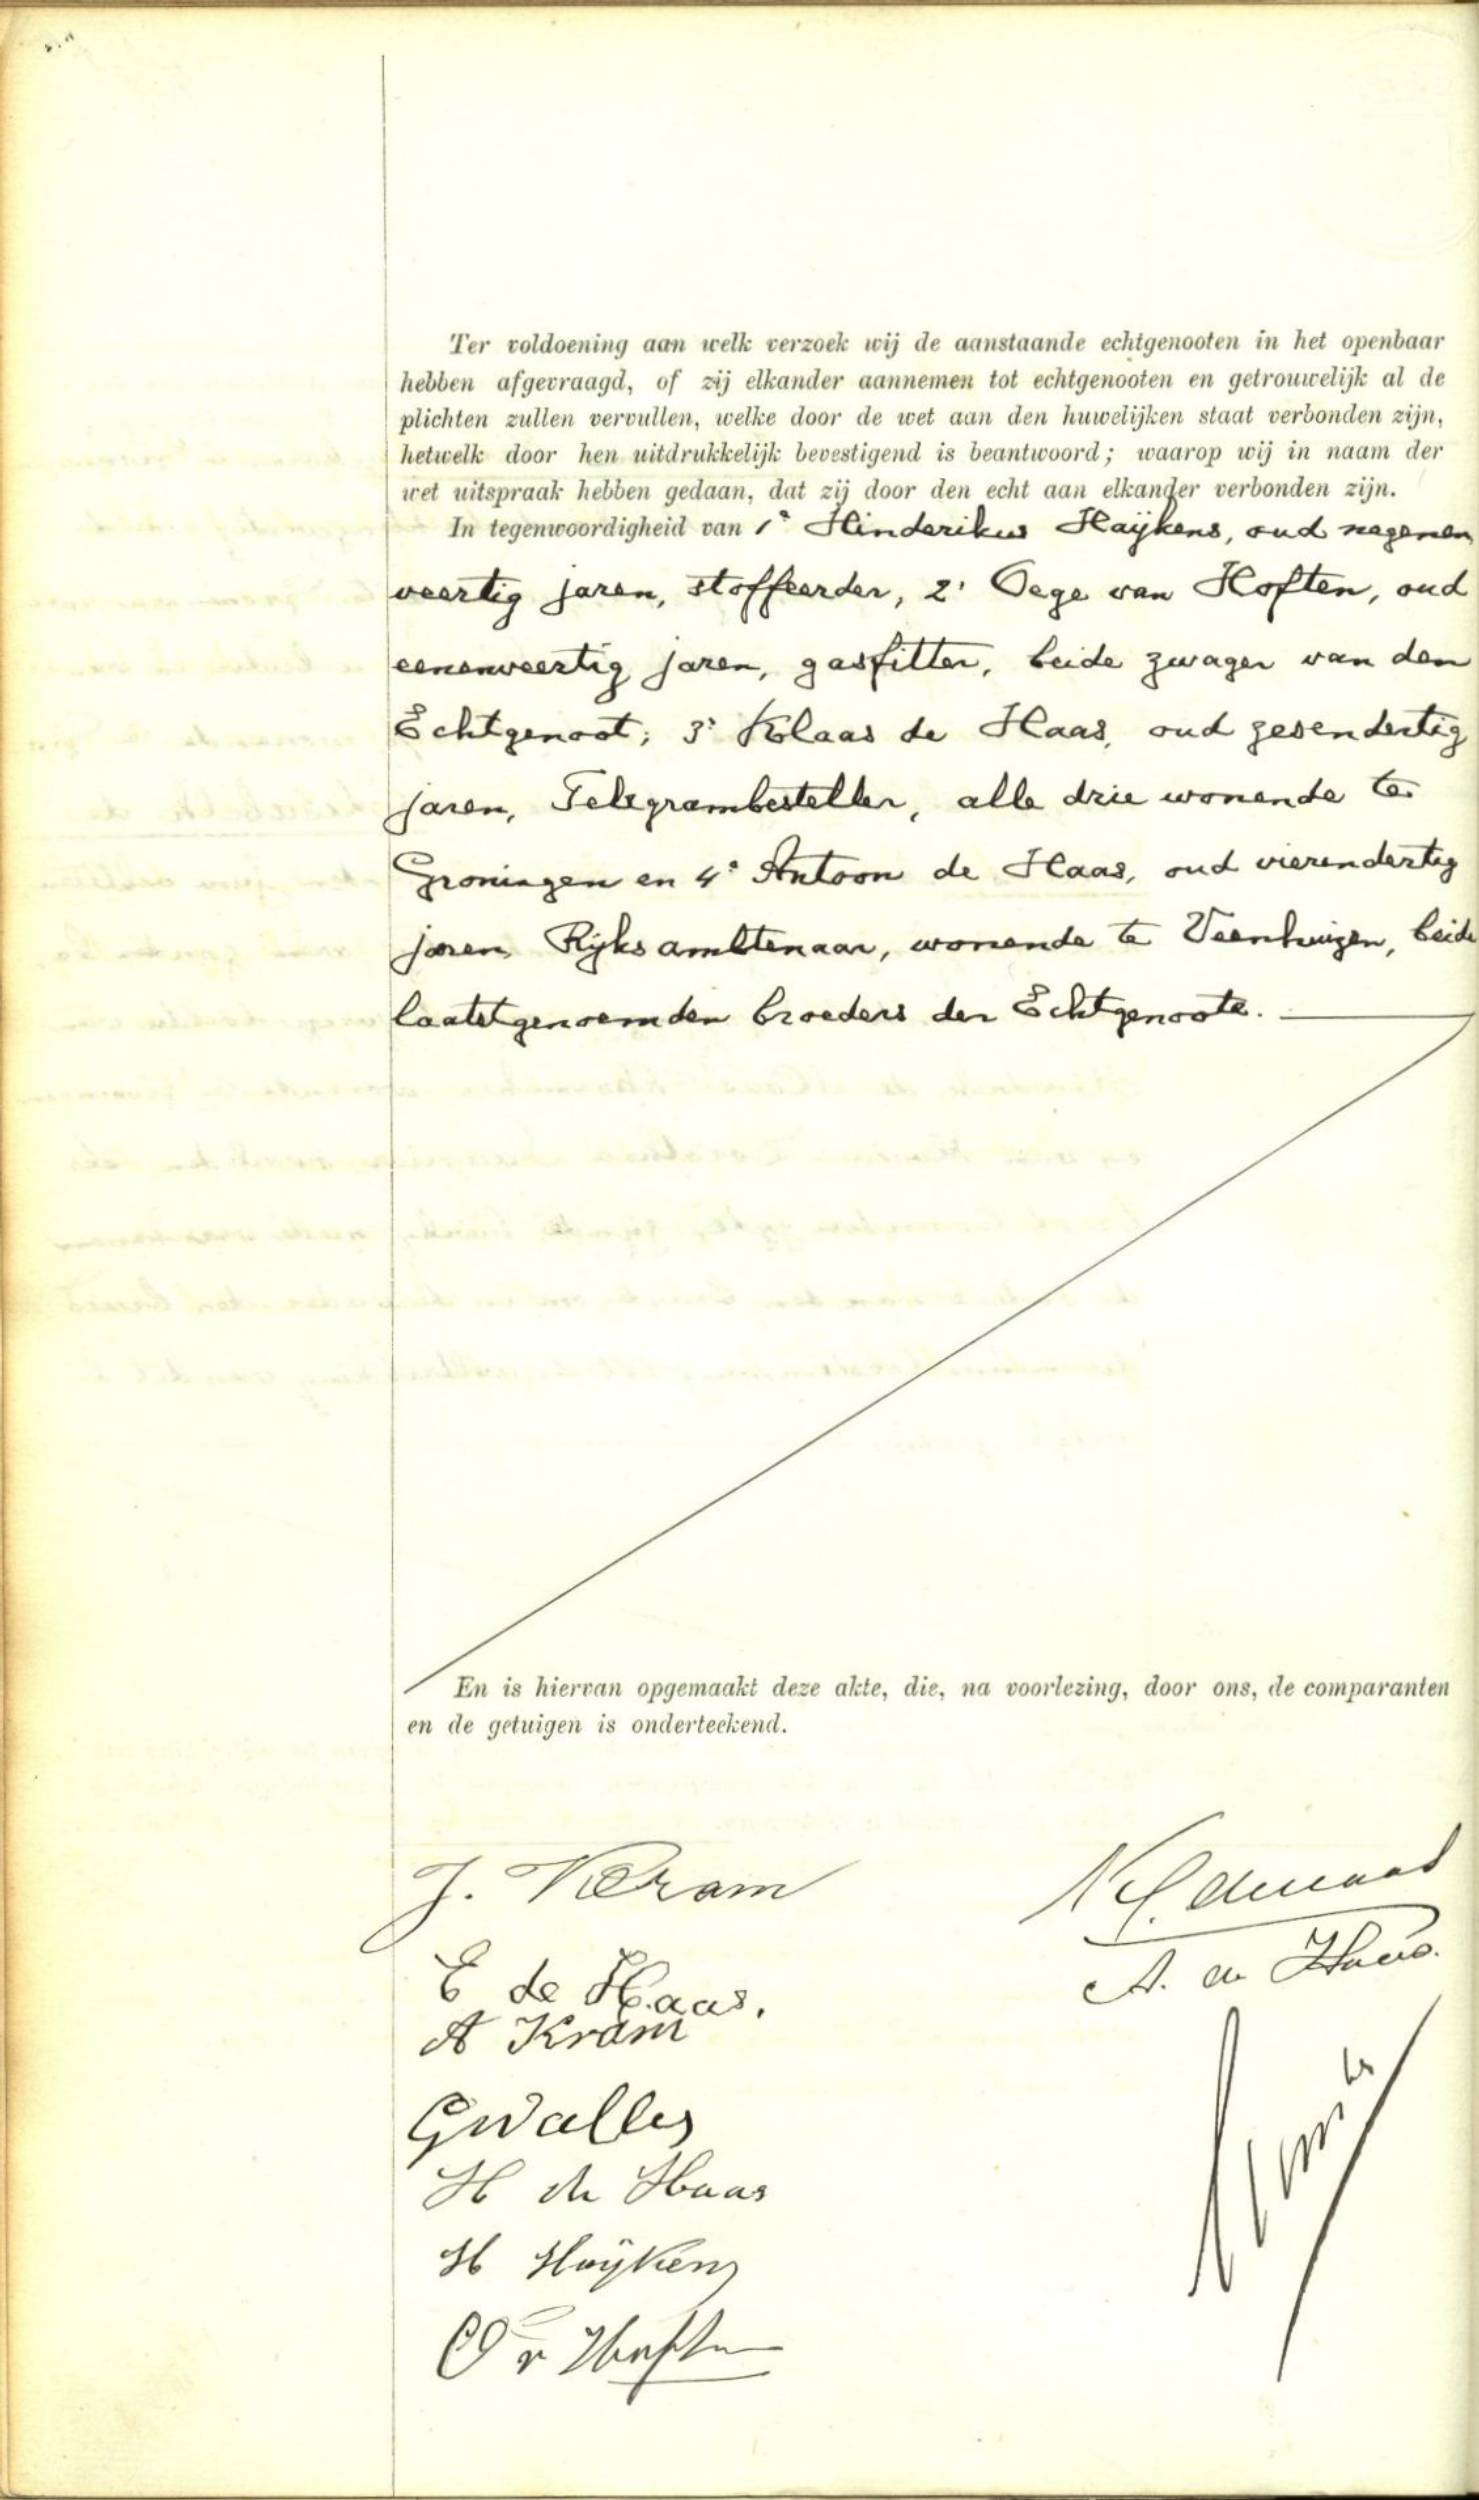 Ter voldoening aan welk verzoek wij de aanstaande echtgenooten in het openbaar
hebben afgevraagd, of zij elkander aannemen tot echtgenooten en getrouwelijk al de
plichten zullen vervullen, welke door de wet aan den huwelijken staat verbonden zijn,
hetwelk door hen uitdrukkelijk bevestigend is beantwoord; waarop wij in naam der
wet uitspraak hebben gedaan, dat zij door den echt aan elkander verbonden zijn.
In tegenwoordigheid van 1° Hinderikus Haÿkens, oud negenen
veertig jaren, stoffeerder, 2° Oege van Hoften, oud
eenenveertig jaren, gasfitter, beide zwager van den
Echtgenoot; 3° Klaas de Haas, oud zesendertig
jaren, Telegrambesteller, alle drie wonende te
Groningen en 4° Antoon de Haas, oud vierendertig
jaren Rijksambtenaar, wonende te Veenhuizen, beide
laatstgenoemden broeders der Echtgenoote.
En is hiervan opgemaakt deze akte, die, na voorlezing, door ons, de comparanten
en de getuigen is onderteekend.
J. Kram
E de Haas.
A. de Haas.
A Kram
GWalles
H de Haas
H Haÿkens
O v Hoften